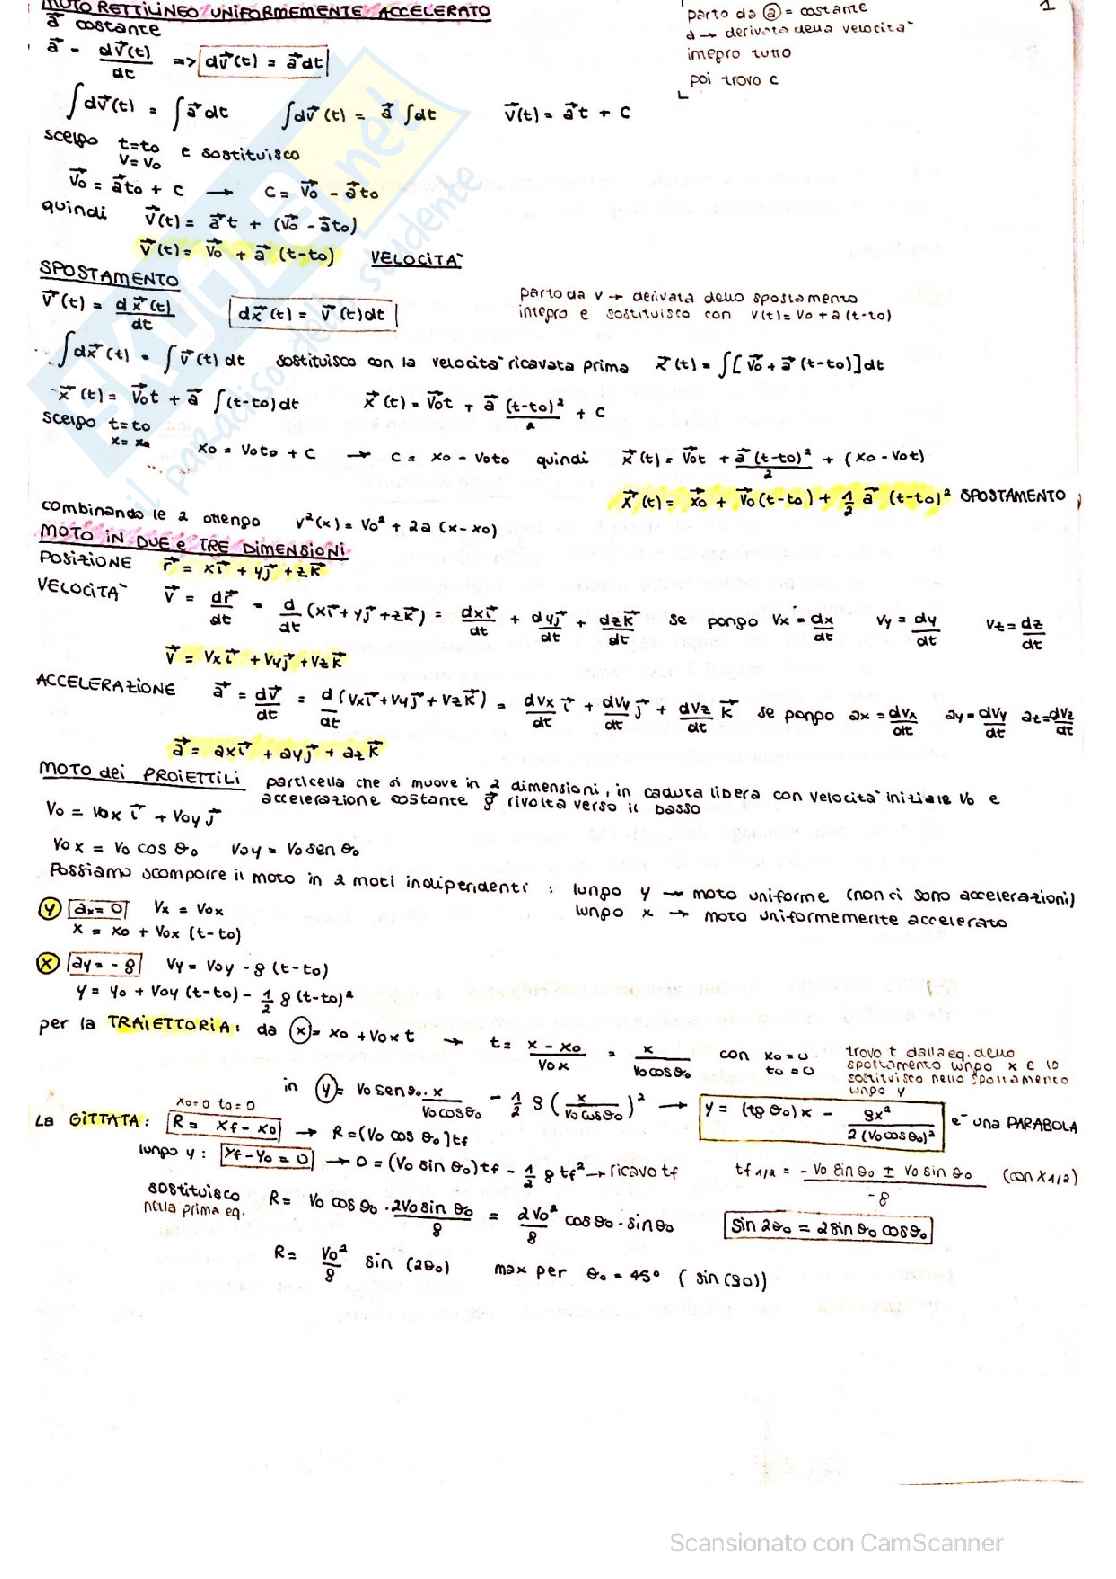 MOTO RETTILINEO UNIFORMEMENTE ACCELERATO
1
a⃗ costante
parto da ⓐ = costante
a → derivata della velocita`
integro tutto
poi trovo c
a⃗ = dv⃗(t)/dt => dv⃗(t) = a⃗dt
∫dv⃗(t) = ∫a⃗dt   ∫dv⃗(t) = a⃗∫dt   v⃗(t) = a⃗t + C
scelgo t=to e sostituisco
v=vo
v⃗o = a⃗to + C → C = v⃗o - a⃗to
quindi v⃗(t) = a⃗t + (v⃗o - a⃗to)
v⃗(t) = v⃗o + a⃗(t-to) VELOCITA`
SPOSTAMENTO
v⃗(t) = dx⃗(t)/dt   dx⃗(t) = v⃗(t)dt
parto da v → derivata dello spostamento
integro e sostituisco con v(t)=vo+a(t-to)
∫dx⃗(t) = ∫v⃗(t)dt sostituisco con la velocita` ricavata prima x⃗(t) = ∫[v⃗o + a⃗(t-to)]dt
x⃗(t) = v⃗ot + a⃗∫(t-to)dt   x⃗(t) = v⃗ot + a⃗(t-to)²/2 + C
scelgo t=to
x=xo
xo = voto + C → C = xo - voto quindi x⃗(t) = v⃗ot + a⃗(t-to)²/2 + (xo - vot)
x⃗(t) = x⃗o + v⃗o(t-to) + 1/2 a⃗(t-to)² SPOSTAMENTO
combinando le 2 ottengo v²(x) = vo² + 2a(x-xo)
MOTO IN DUE e TRE DIMENSIONI
POSIZIONE r⃗ = xi⃗ + yj⃗ + zk⃗
VELOCITA` v⃗ = dr⃗/dt = d/dt (xi⃗+yj⃗+zk⃗) = dxi⃗/dt + dyj⃗/dt + dzk⃗/dt se pongo vx = dx/dt   vy = dy/dt   vz = dz/dt
v⃗ = vxi⃗ + vyj⃗ + vzk⃗
ACCELERAZIONE a⃗ = dv⃗/dt = d/dt (vxi⃗+vyj⃗+vzk⃗) = dvx/dt i⃗ + dvy/dt j⃗ + dvz/dt k⃗ se pongo ax = dvx/dt   ay = dvy/dt   az = dvz/dt
a⃗ = axi⃗ + ayj⃗ + azk⃗
MOTO dei PROIETTILI particella che si muove in 2 dimensioni, in caduta libera con velocita` iniziale vo e
accelerazione costante g⃗ rivolta verso il basso
vo = vox i⃗ + voy j⃗
vox = vo cos θo   voy = vo sen θo
Possiamo scomporre il moto in 2 moti indipendenti : lungo y → moto uniforme (non ci sono accelerazioni)
lungo x → moto uniformemente accelerato
ⓨ ax = 0   vx = vox
x = xo + vox (t-to)
ⓧ ay = -g   vy = voy - g(t-to)
y = yo + voy(t-to) - 1/2 g(t-to)²
per la TRAIETTORIA: da ⓧ = xo + voxt → t = x - xo/vox = x/vocosθo con xo=0 to=0
trovo t dalla eq. dello
spostamento lungo x e lo
sostituisco nello spostamento
lungo y
in ⓨ = vo senθo · x/vocosθo - 1/2 g (x/vo cosθo)² → y = (tg θo)x - gx²/2(vocosθo)² e` una PARABOLA
xo=0 to=0
La GITTATA: R = xf - xo → R = (vo cos θo)tf
lungo y: yf - yo = 0 → 0 = (vo sin θo)tf - 1/2 g tf² → ricavo tf   tf1/2 = -vo sin θo ± vo sin θo/-g (con x1/2)
sostituisco
nella prima eq.
R = vo cos θo · 2vo sin θo/g = 2vo²/g cosθo · sinθo   sin 2θo = 2sin θo cosθo
R = vo²/g sin (2θo)   max per θo = 45° (sin(90))
il paradiso dello studente
Scansionato con CamScanner